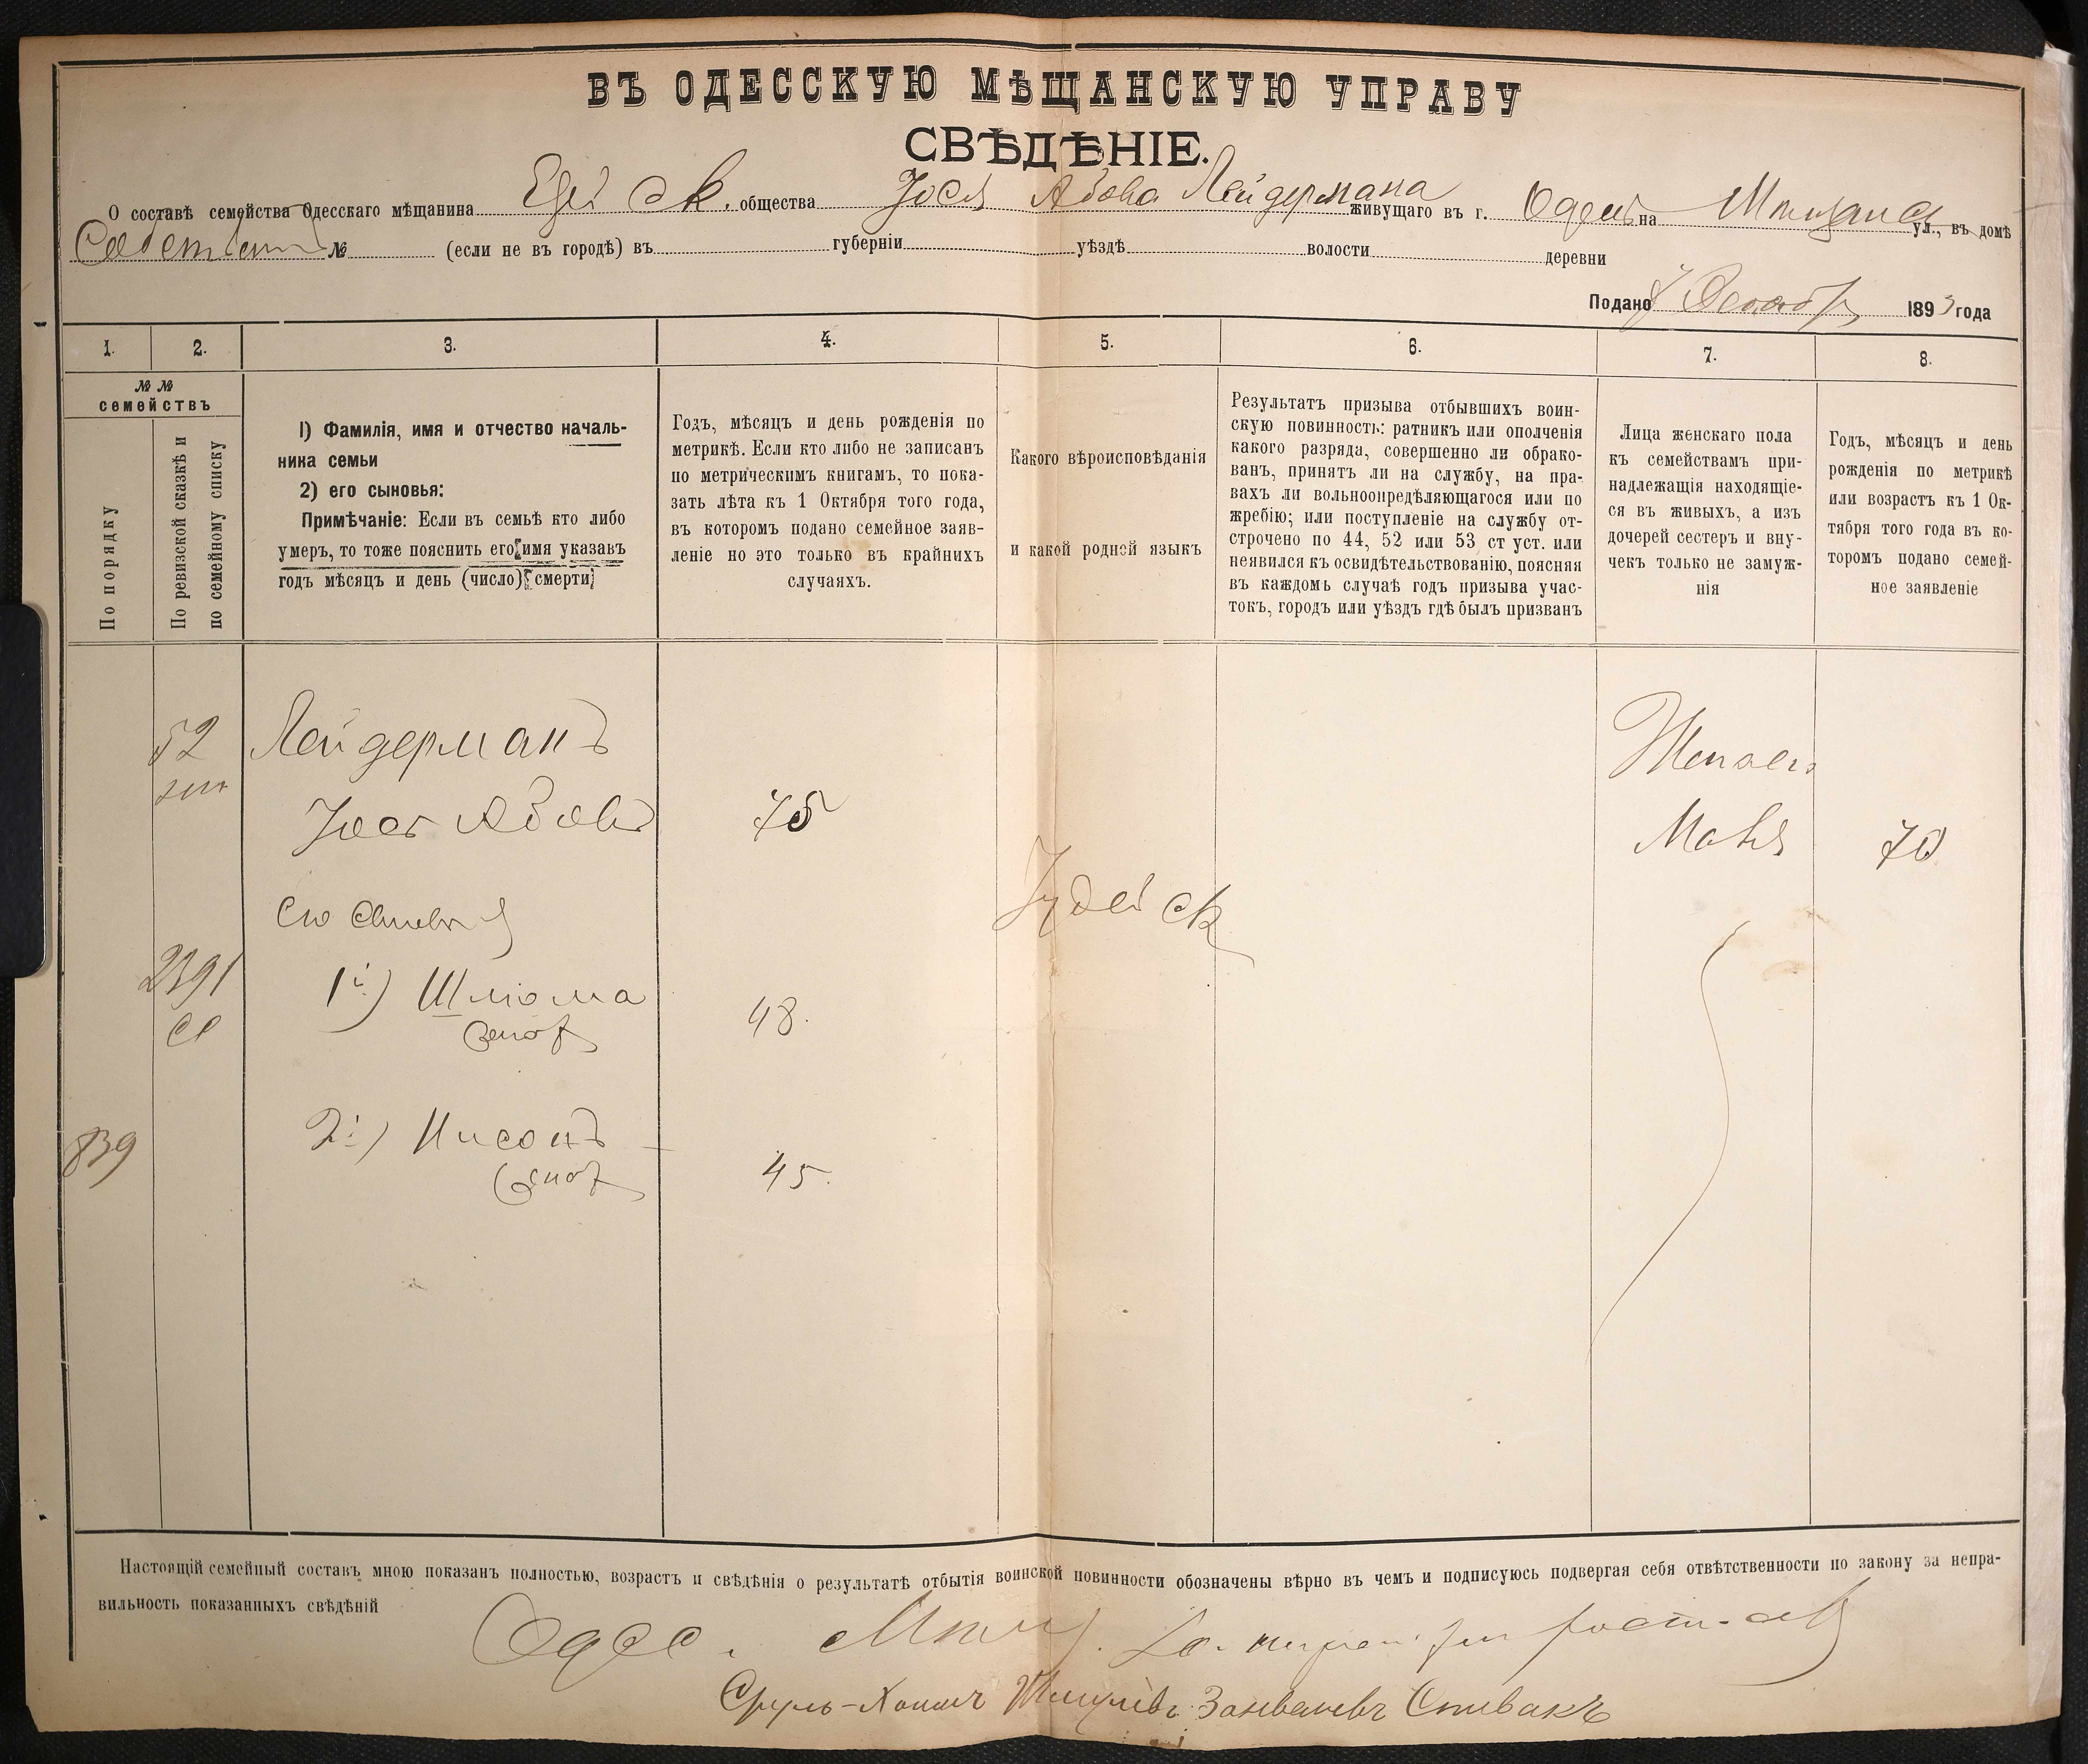 ВЪ ОДЕССКУЮ МѢЩАНСКУЮ УПРАВУ
СВѢДѢНІЕ.
О составѣ семейства Одесскаго мѣщанина Еврейск. общества Іося Абова Лейдермана живущаго въ г. Одессѣ на ул., въ домѣ
№ (если не въ городѣ) въ губерніи уѣздѣ волости деревни
Подано 1893 года
1. 2. 3. 4. 5. 6. 7. 8.
№№
семействъ
По порядку
По ревизской сказкѣ и
по семейному списку
1) Фамилія, имя и отчество началь-
ника семьи
2) его сыновья:
Примѣчаніе: Если въ семьѣ кто либо
умеръ, то тоже пояснить его имя указавъ
годъ мѣсяцъ и день (число) смерти
Годъ, мѣсяцъ и день рожденія по
метрикѣ. Если кто либо не записанъ
по метрическимъ книгамъ, то пока-
зать лѣта къ 1 Октября того года,
въ которомъ подано семейное заяв-
леніе но это только въ крайнихъ
случаяхъ.
Какого вѣроисповѣданія
и какой родной языкъ
Результатъ призыва отбывшихъ воин-
скую повинность: ратникъ или ополченія
какого разряда, совершенно ли обрако-
ванъ, принятъ ли на службу, на пра-
вахъ ли вольноопредѣляющагося или по
жребію; или поступленіе на службу от-
строчено по 44, 52 или 53 ст уст. или
неявился къ освидѣтельствованію, поясняя
въ каждомъ случаѣ годъ призыва учас-
токъ, городъ или уѣздъ гдѣ былъ призванъ
Лица женскаго пола
къ семействамъ при-
надлежащія находящіе-
ся въ живыхъ, а изъ
дочерей сестеръ и вну-
чекъ только не замуж-
нія
Годъ, мѣсяцъ и день
рожденія по метрикѣ
или возрастъ къ 1 Ок-
тября того года въ ко-
торомъ подано семей-
ное заявленіе
52 Лейдерманъ Жена его
Іось Абовъ 75 Мовя 70
Іудейск
Его сыновья
2391 1й) Шліома 48.
839 2й) Нисонъ 45.
Настоящій семейный составъ мною показанъ полностью, возрастъ и свѣдѣнія о результатѣ отбытія воинской повинности обозначены вѣрно въ чемъ и подписуюсь подвергая себя отвѣтственности по закону за непра-
вильность показанныхъ свѣдѣній
Одес. Мѣщ.
Сруль-Хаимъ Шмулевъ Занвелевъ Спивакъ